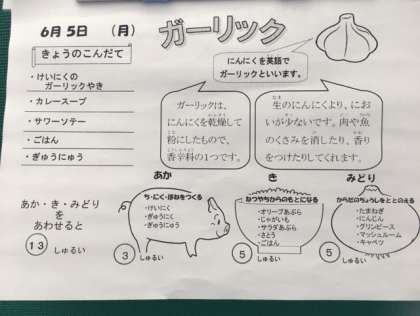 6月5日 （月）
ガーリック
きょうのこんだて
にんにくを英語で
ガーリックといいます。
・けいにくの
ガーリックやき
・カレースープ
・サワーソテー
・ごはん
・ぎゅうにゅう
ガーリックは、
にんにくを乾燥して
粉にしたもので、
香辛料の1つです。
生のにんにくより、にお
いが少ないです。肉や魚
のくさみを消したり、香り
をつけたりしてくれます。
あか・き・みどり
を
あわせると
13 しゅるい
あか
ち・にく・ほねをつくる
・けいにく
・ぎゅうにく
・ぎゅうにゅう
3 しゅるい
き
ねつやちからのもとになる
・オリーブあぶら
・じゃがいも
・サラダあぶら
・さとう
・ごはん
5 しゅるい
みどり
からだのちょうしをととのえる
・たまねぎ
・にんじん
・グリンピース
・マッシュルーム
・キャベツ
5 しゅるい